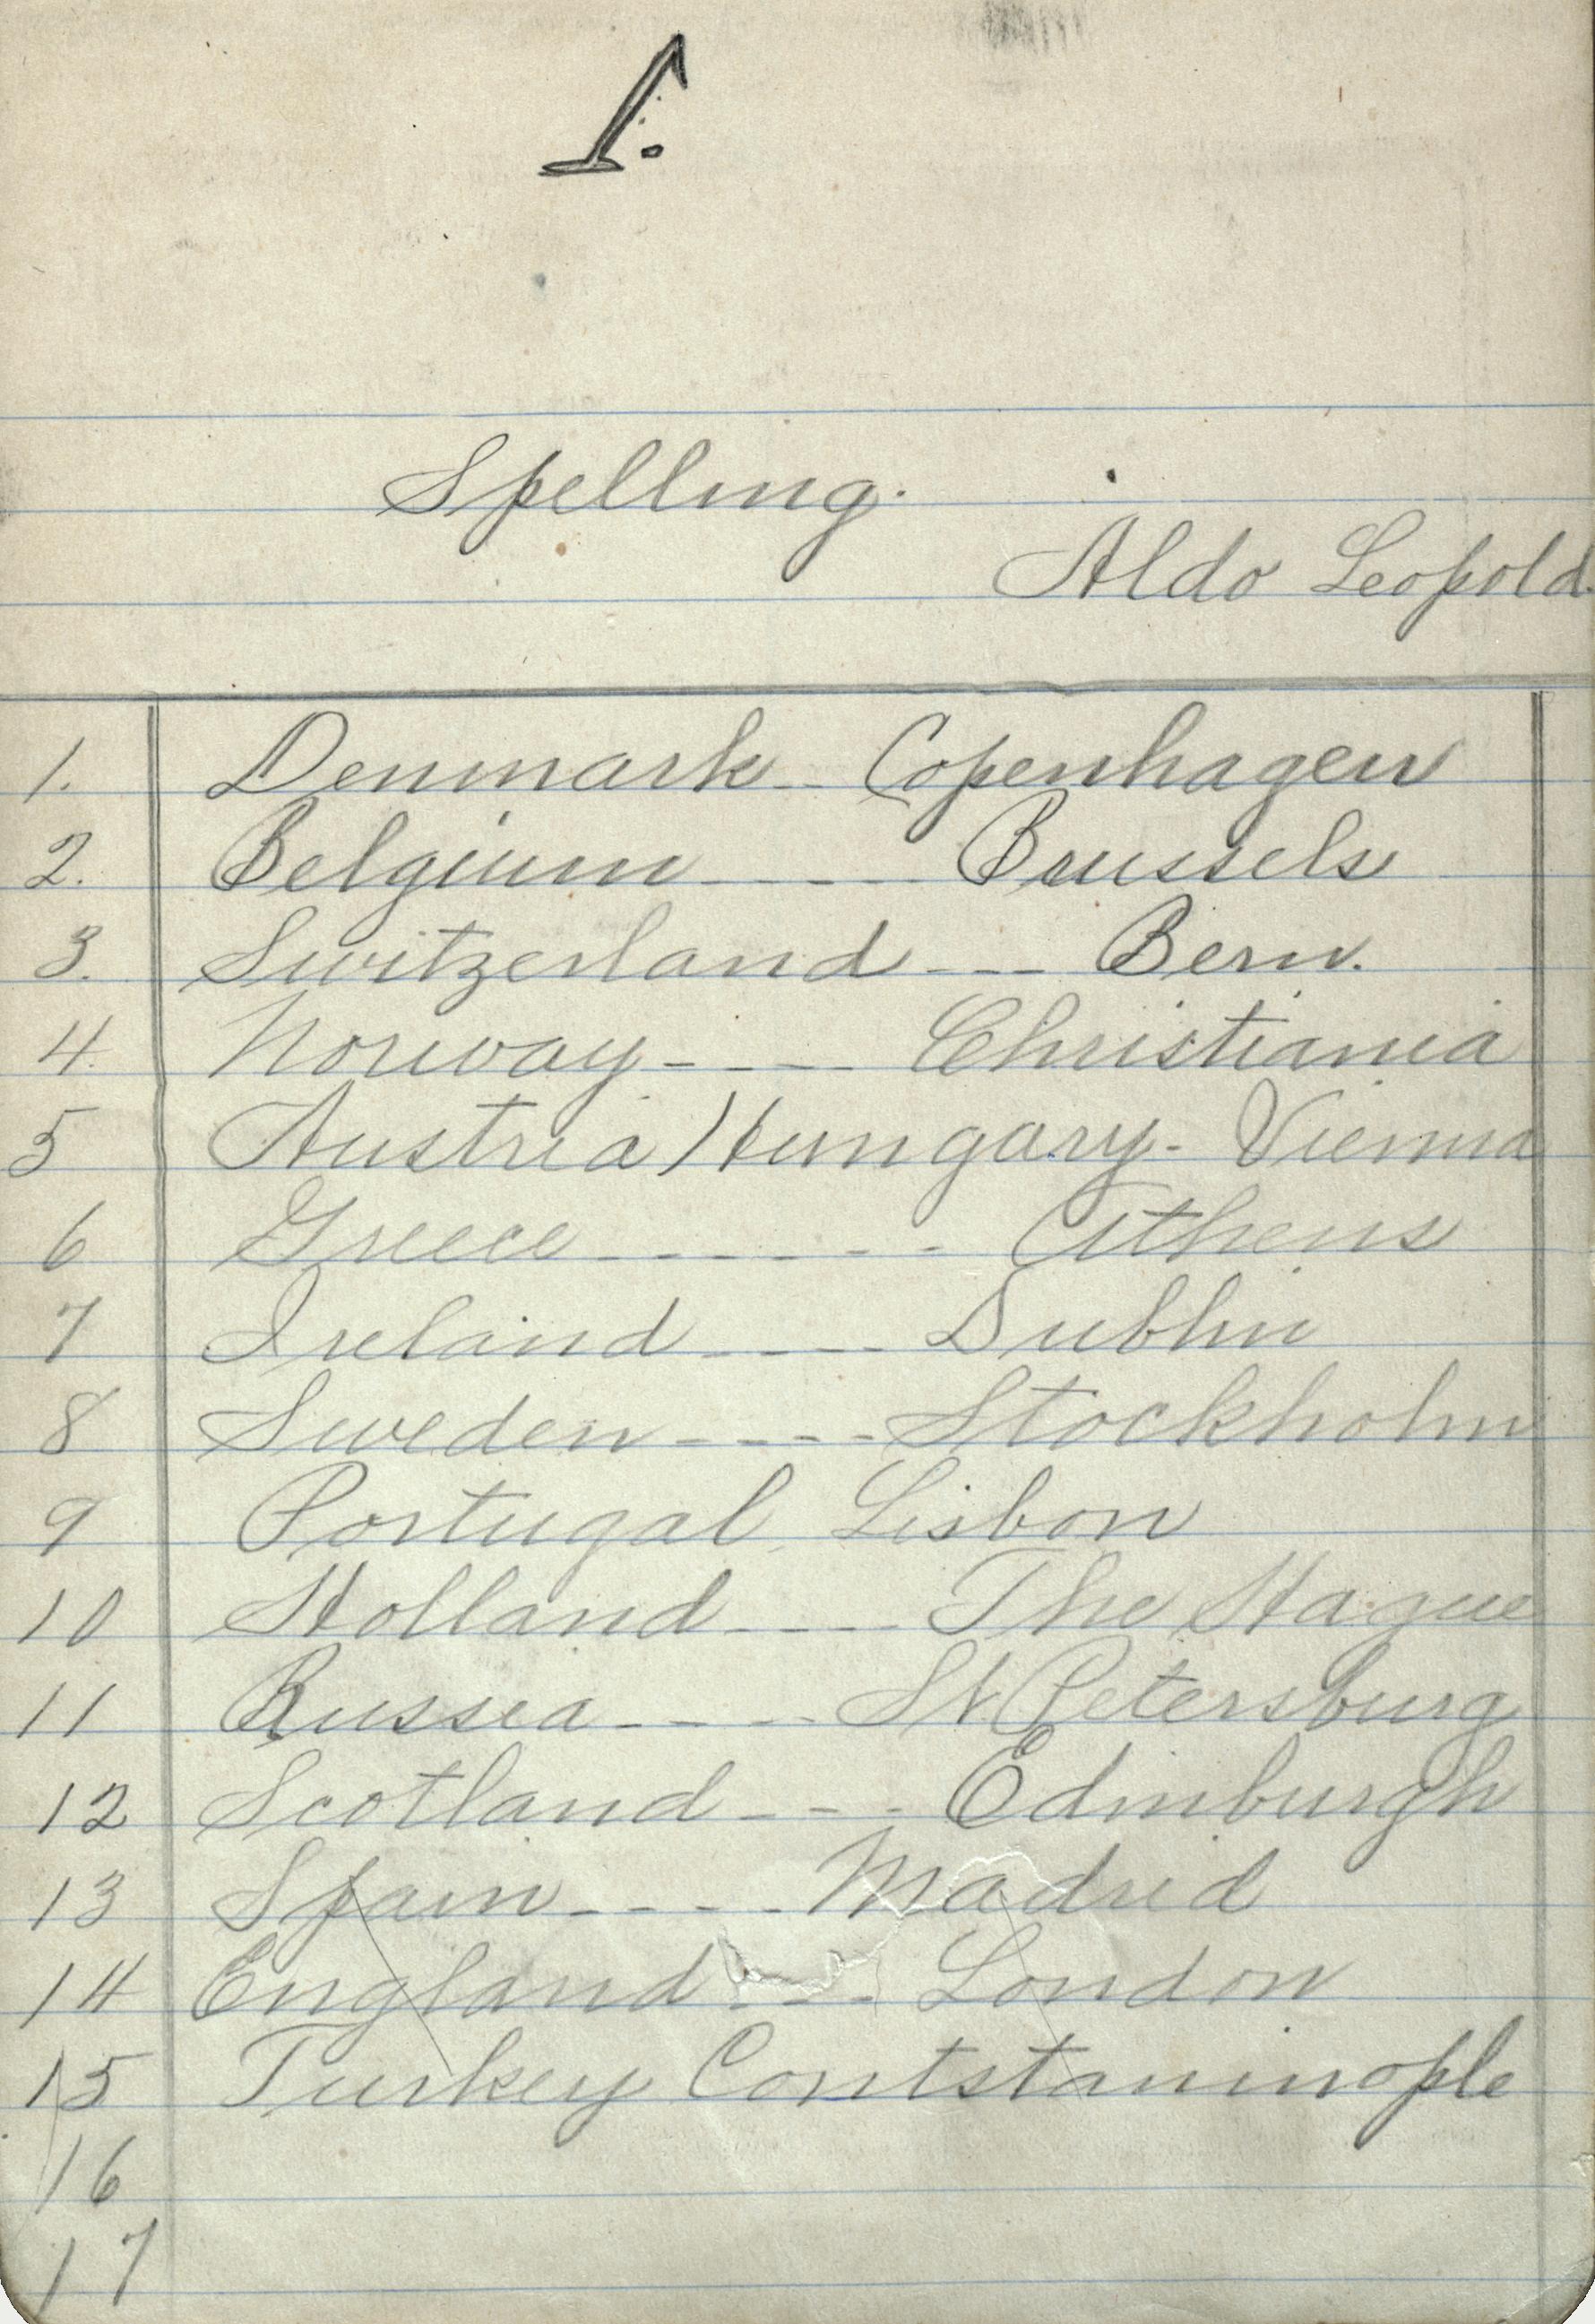 1.
Spelling.
Aldo Leopold.
1. Denmark -- Copenhagen
2. Belgium --- Brussels
3. Switzerland --- Bern.
4. Norway ---- Christiania
5 Austria Hungary - Vienna
6 Greece ------ Athens
7 Ireland ---- Dublin
8 Sweden ---- Stockholm
9 Portugal Lisbon
10 Holland ---- The Hague
11 Russia ---- St Petersburg
12 Scotland --- Edinburgh
13 Spain ---- Madrid
14 England --- London
15 Turkey Contstaninople
16
17